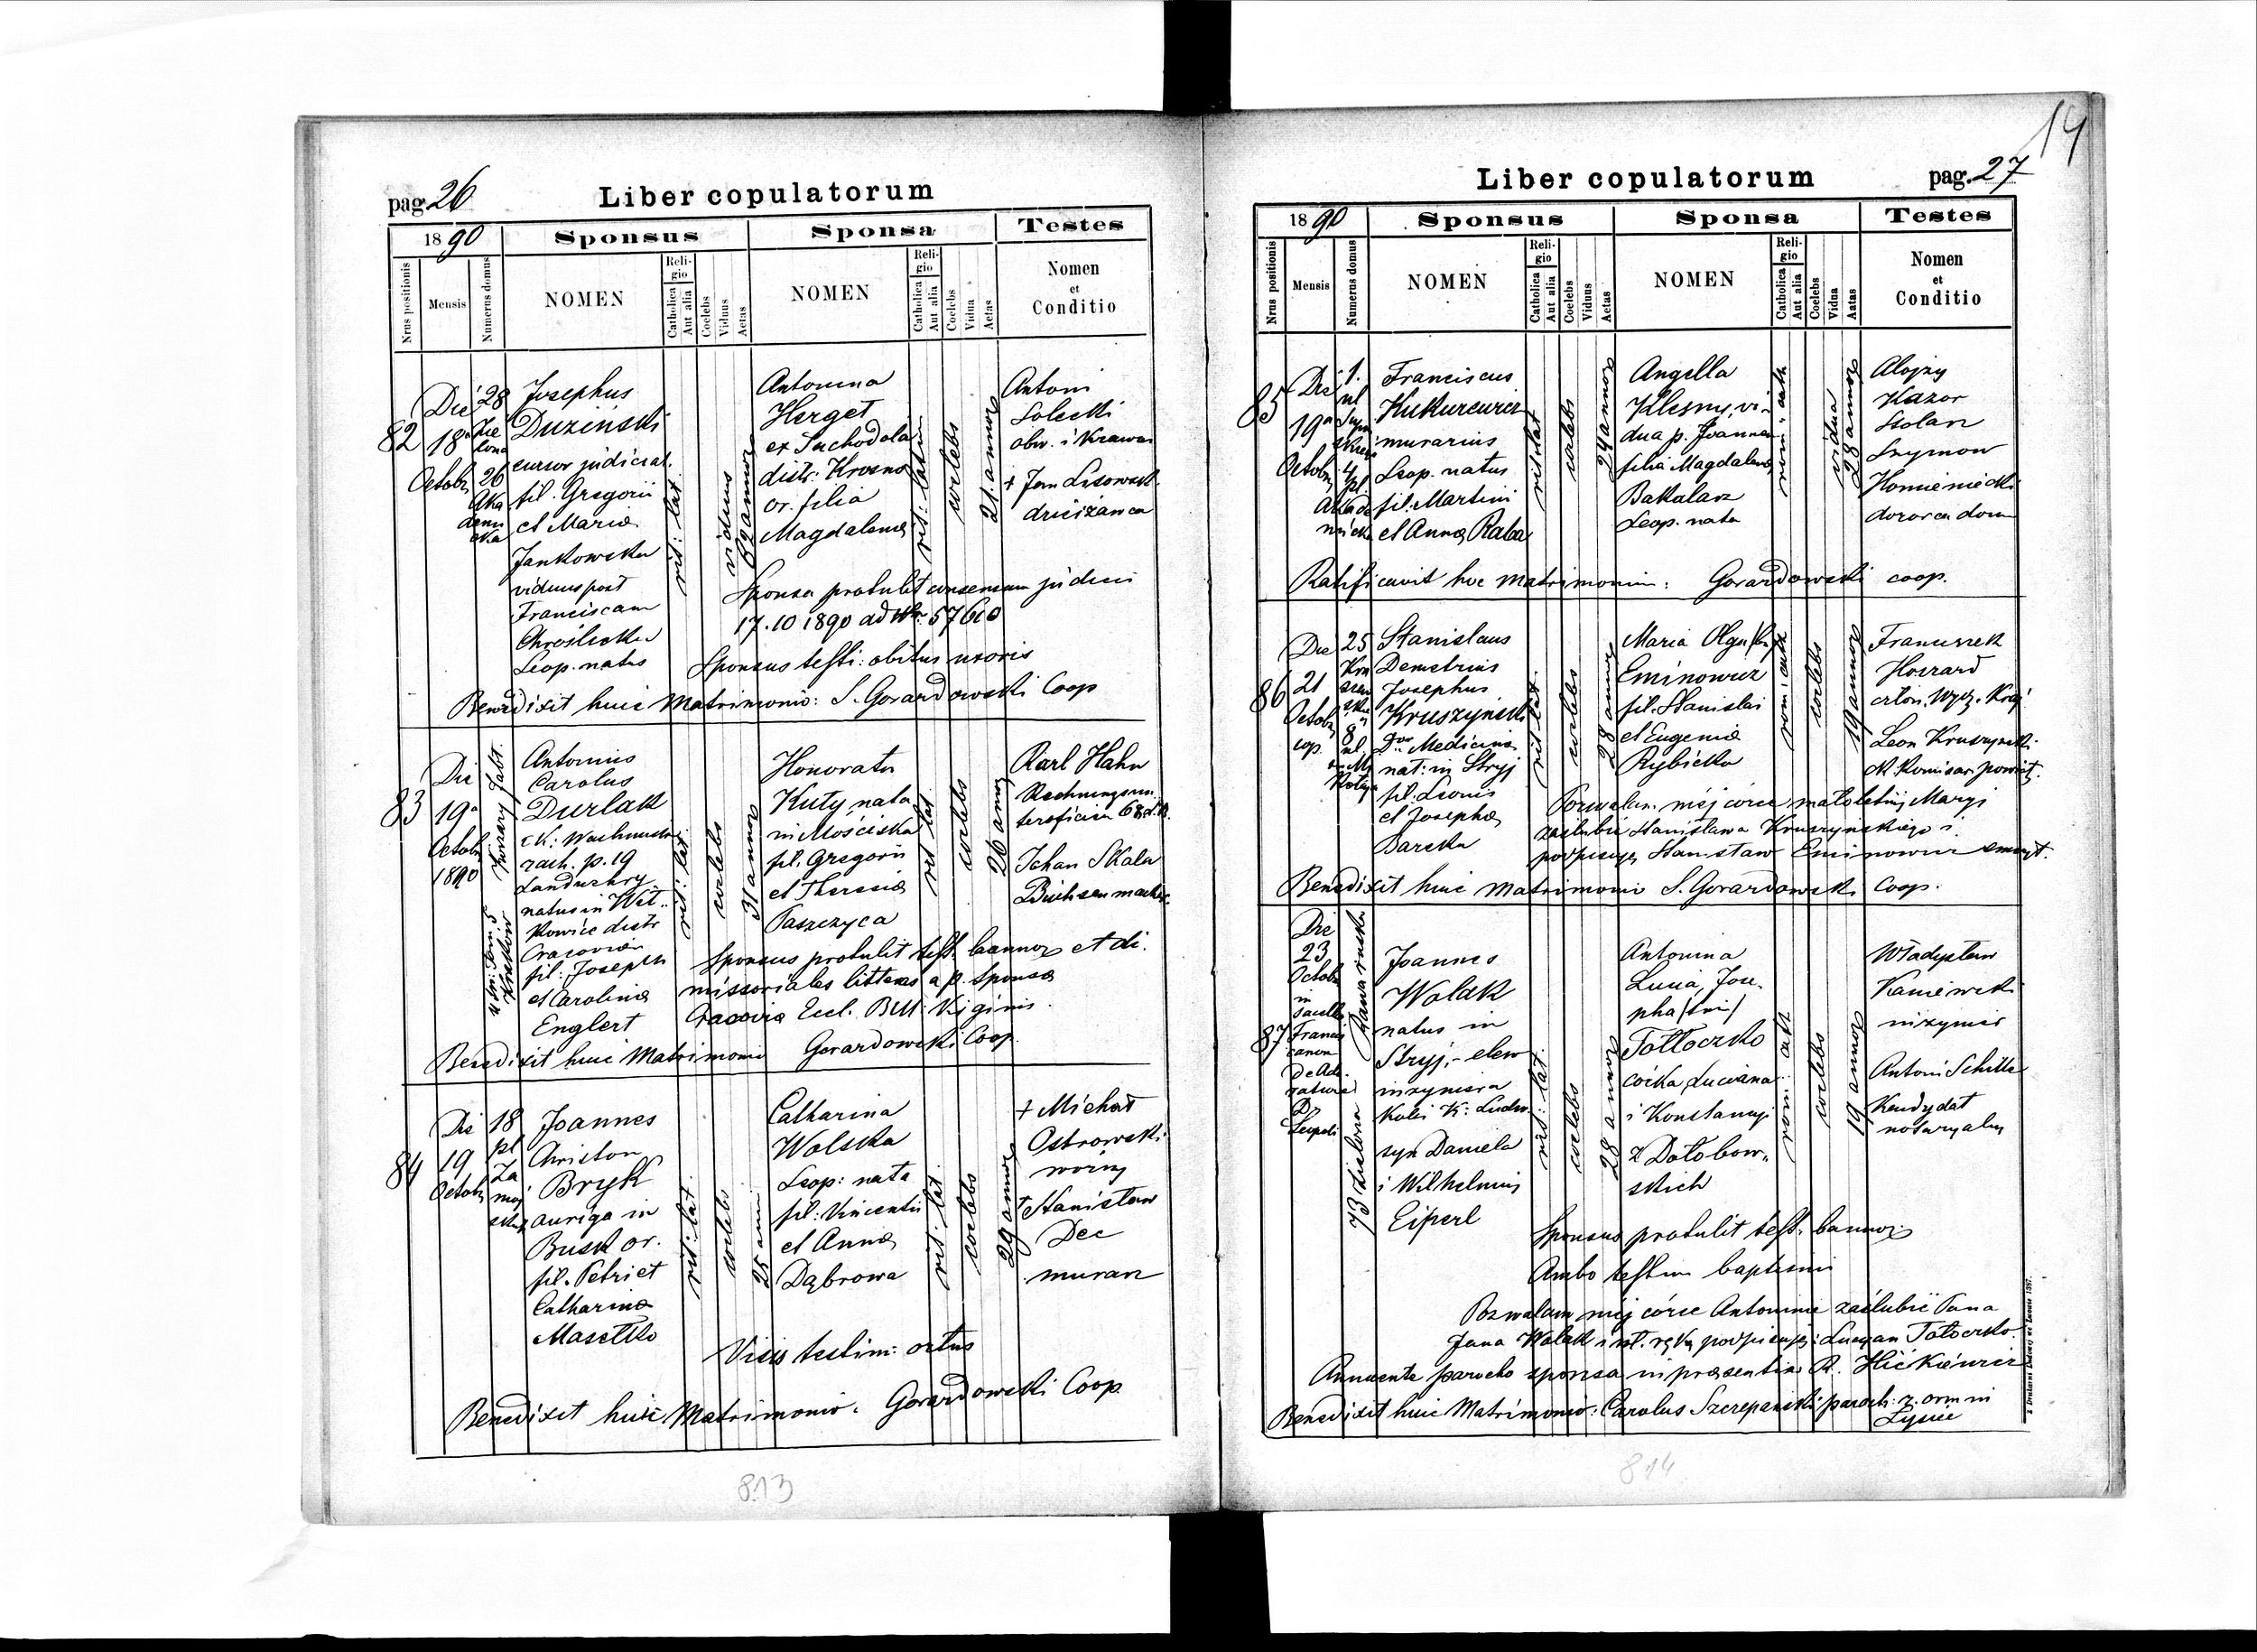 pag. 26
Liber copulatorum
1890
Sponsus
Sponsa
Testes
Nrus positionis
Mensis
Numerus domus
NOMEN
Religio
Catholica
Aut alia
Coelebs
Viduus
Aetas
NOMEN
Religio
Catholica
Aut alia
Coelebs
Vidua
Aetas
Nomen
et
Conditio
82
Die
18a
Octobr
28
Zie
lona
26
Aka
demi
cka
Josephus
Duzinski
cursor judicial.
fil. Gregorii
et Maria
Jankowska
viduus post
Franciscam
Leop. natus
rit: lat
viduus
52 annor
Antonina
Herget
ex Suchodola
distr: Krosno
or. filia
Magdalena
rit: latin
coelebs
21 annor
Antoni
Solecki
obw. i Krawiec
+ Jan Lisowski
Sponsa protulit consensum judicii
17.10 1890 ad Nr: 57610
Sponsus testi: obitus uxoris
Benedixit huic Matrimonio: S. Gorardowski Coop
83
Die
19a
Octobr
1890
Antonius
Carolus
Durlak
zach. p. 19
natus in Wit..
kowice distr
Cracovien
fil: Joseph
et Carolina
Englert
rit: lat
coelebs
31 annor
Honorata
Kuty nata
in Mościska
fil. Gregorii
et Theresia
Paszczyca
rit lat
coelebs
26 annor
Karl Hahn
Johan Skala
Büchsenmacher
Sponsus protulit test. bannor et di.
missoriales litteras a p. Sponsa
Cracovia Eccl. BM. Virginis
Benedixit huic Matrimonio Gorardowski Coop.
84
Die
19
Octobr
18
pl
Za
moj
skieg
Joannes
Christon
Bryk
auriga in
Busk or.
fil. Petri et
Catharina
Masełko
rit: lat
coelebs
25 ann
Catharina
Wolska
Leop: nata
fil: Vincentii
et Anna
Dąbrowa
rit: lat
coelebs
29 annor
+ Michał
Ostrowski
woźny
+ Stanisław
Dec
murarz
Visis testim: ortus
Benedixit huic Matrimonio: Gorardowski Coop.
813
14
Liber copulatorum
pag. 27
1890
Sponsus
Sponsa
Testes
Nrus positionis
Mensis
Numerus domus
NOMEN
Religio
Catholica
Aut alia
Coelebs
Viduus
Aetas
NOMEN
Religio
Catholica
Aut alia
Coelebs
Vidua
Aatas
Nomen
et
Conditio
85
Die
19a
Octobr
1.
ul
4
pl
Akade
micki
Franciscus
Kukurewicz
murarius
Leop. natus
fil. Martini
et Anna Raba
rit lat
coelebs
24 annor
Angella
Klesny, vi-
dua p. Joanne
filia Magdalena
Bakalarz
Leop. nata
rom: cath
vidua
28 annor
Alojzy
Kazor
Stolarz
Szymon
dozorca domu
Ratificavit hoc matrimonium: Gorardowski coop.
86
Die
21
Octobr
cop.
25
8
ul
Stanislaus
Demetrius
Josephus
Kruszynski
Dor Medicina
nat: in Stryj
fil. Leonis
et Josepha
Barska
rit lat
coelebs
28 annor
Maria Olga
Eminowicz
fil. Stanislai
et Eugenia
Rybicka
rom: cath
coelebs
19 annor
Franciszek
Hoszard
człon. Wydz. Kraj
Leon Kruszynski
ck Komisarz powiat.
Pozwalam mej córce małoletniej Maryi
zaślubić Stanisława Kruszyńskiego i
podpisuję Stanisław Eminowicz emeryt.
Benedixit huic matrimonio S. Gorardowski Coop.
87
Die
23
Octobr
in
Sacello
Francis
canor
Joannes
Wolak
natus in
Stryj,- elew
inzyniera
Kolei K: Ludw.
syn Daniela
i Wilhelminy
Eiperl
rit: lat
coelebs
28 annor
Antonina
Lucia, Jose-
pha
Tołłoczko
córka Luciana
i Konstancyi
z Dołobow-
skich
rom: cath
coelebs
19 annor
Władysław
Kaniewski
inzynier
Antoni Schiller
Kandydat
notaryalny
Sponsus protulit test. bannor.
Ambo testim baptismi
Pozwalam mej córce Antoninie zaślubić Pana
Jana Wolak i wł. ręką podpisuję: Lucyan Tołoczko.
Annuente parocho sponsa in præsentia R. Hickiewicz
Benedixit huic Matrimonio: Carolus Szczepański paroch: r. orm in
Łyscu
814